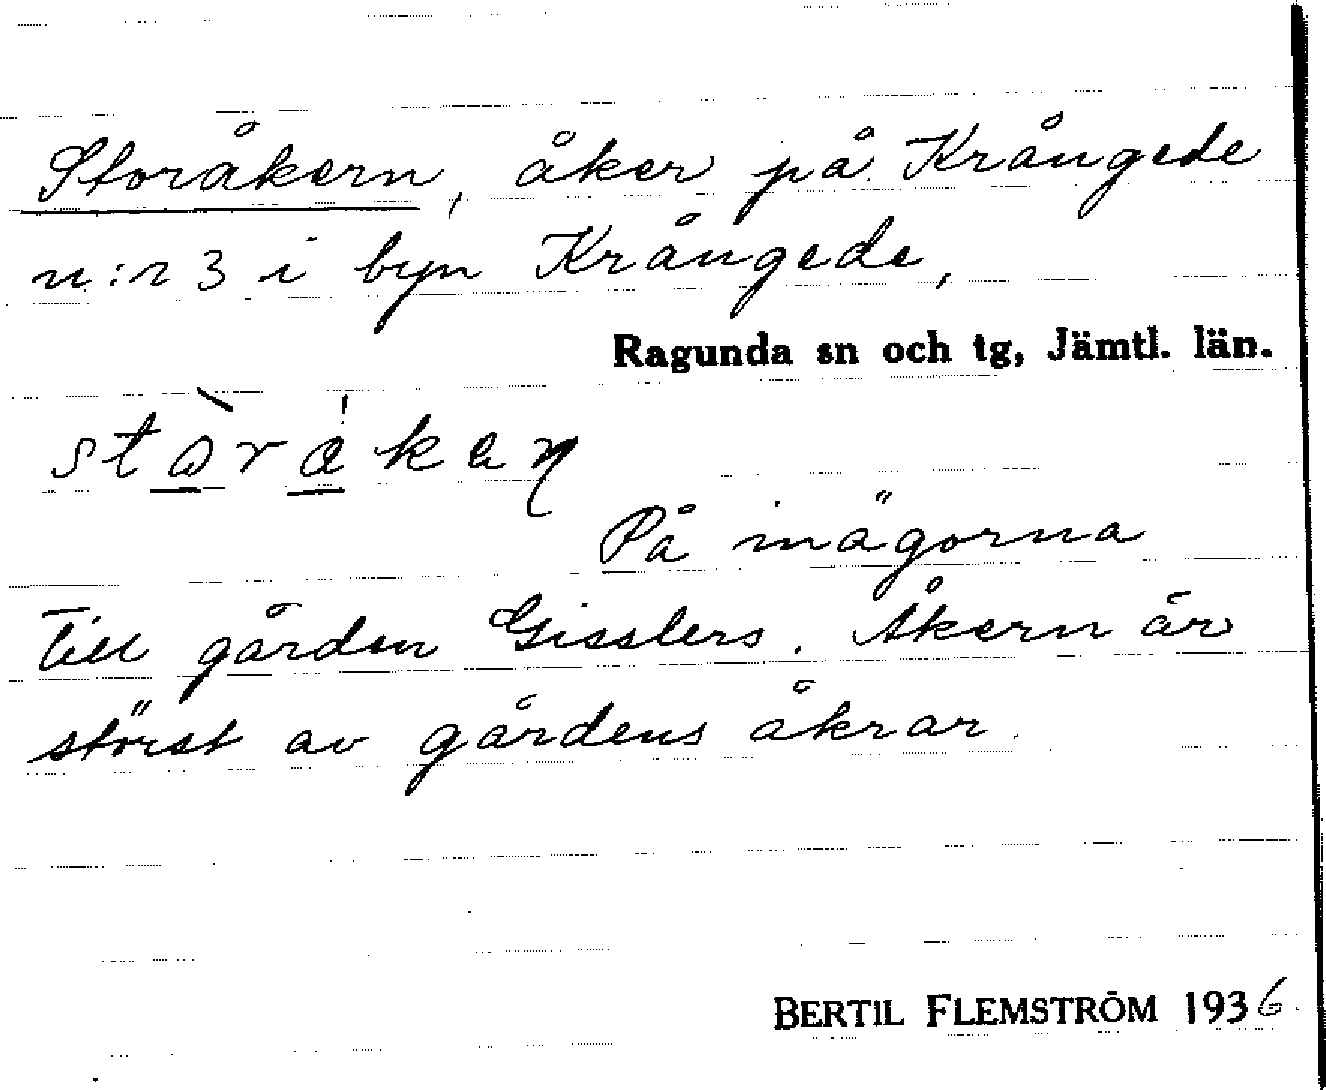 Storåkern, åker på Krångede
n:r 3 i byn Krångede,
Ragunda sn och tg, Jämtl. län.
På inägorna
till gården Gisslers. Åkern är
störst av gårdens åkrar.
BERTIL FLEMSTRÖM 1936